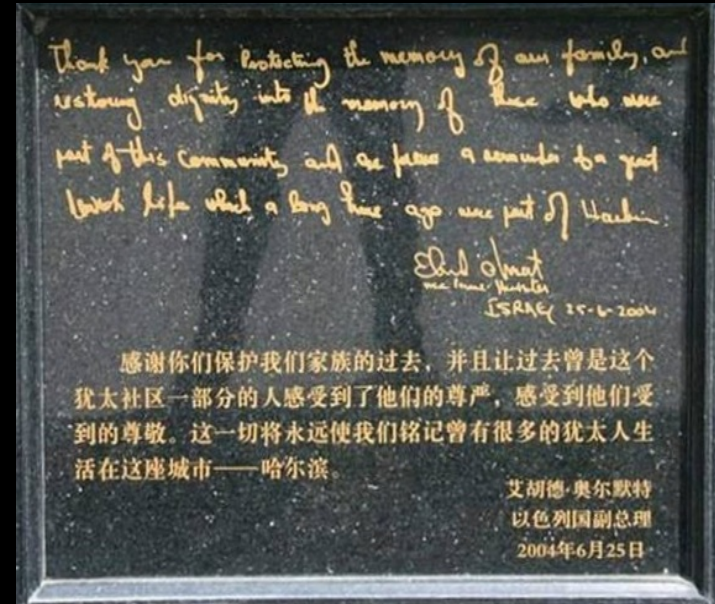 Thank you for Protecting the memory of our family, and
restoring dignity into the memory of those who were
part of this community and a reminder of a great
Jewish life which a long time ago was part of Harbin.
Ehud Olmert
vice Prime-Minister
ISRAEL 25-6-2004
感谢你们保护我们家族的过去，并且让过去曾是这个
犹太社区一部分的人感受到了他们的尊严，感受到他们受
到的尊敬。这一切将永远使我们铭记曾有很多的犹太人生
活在这座城市——哈尔滨。
艾胡德·奥尔默特
以色列国副总理
2004年6月25日